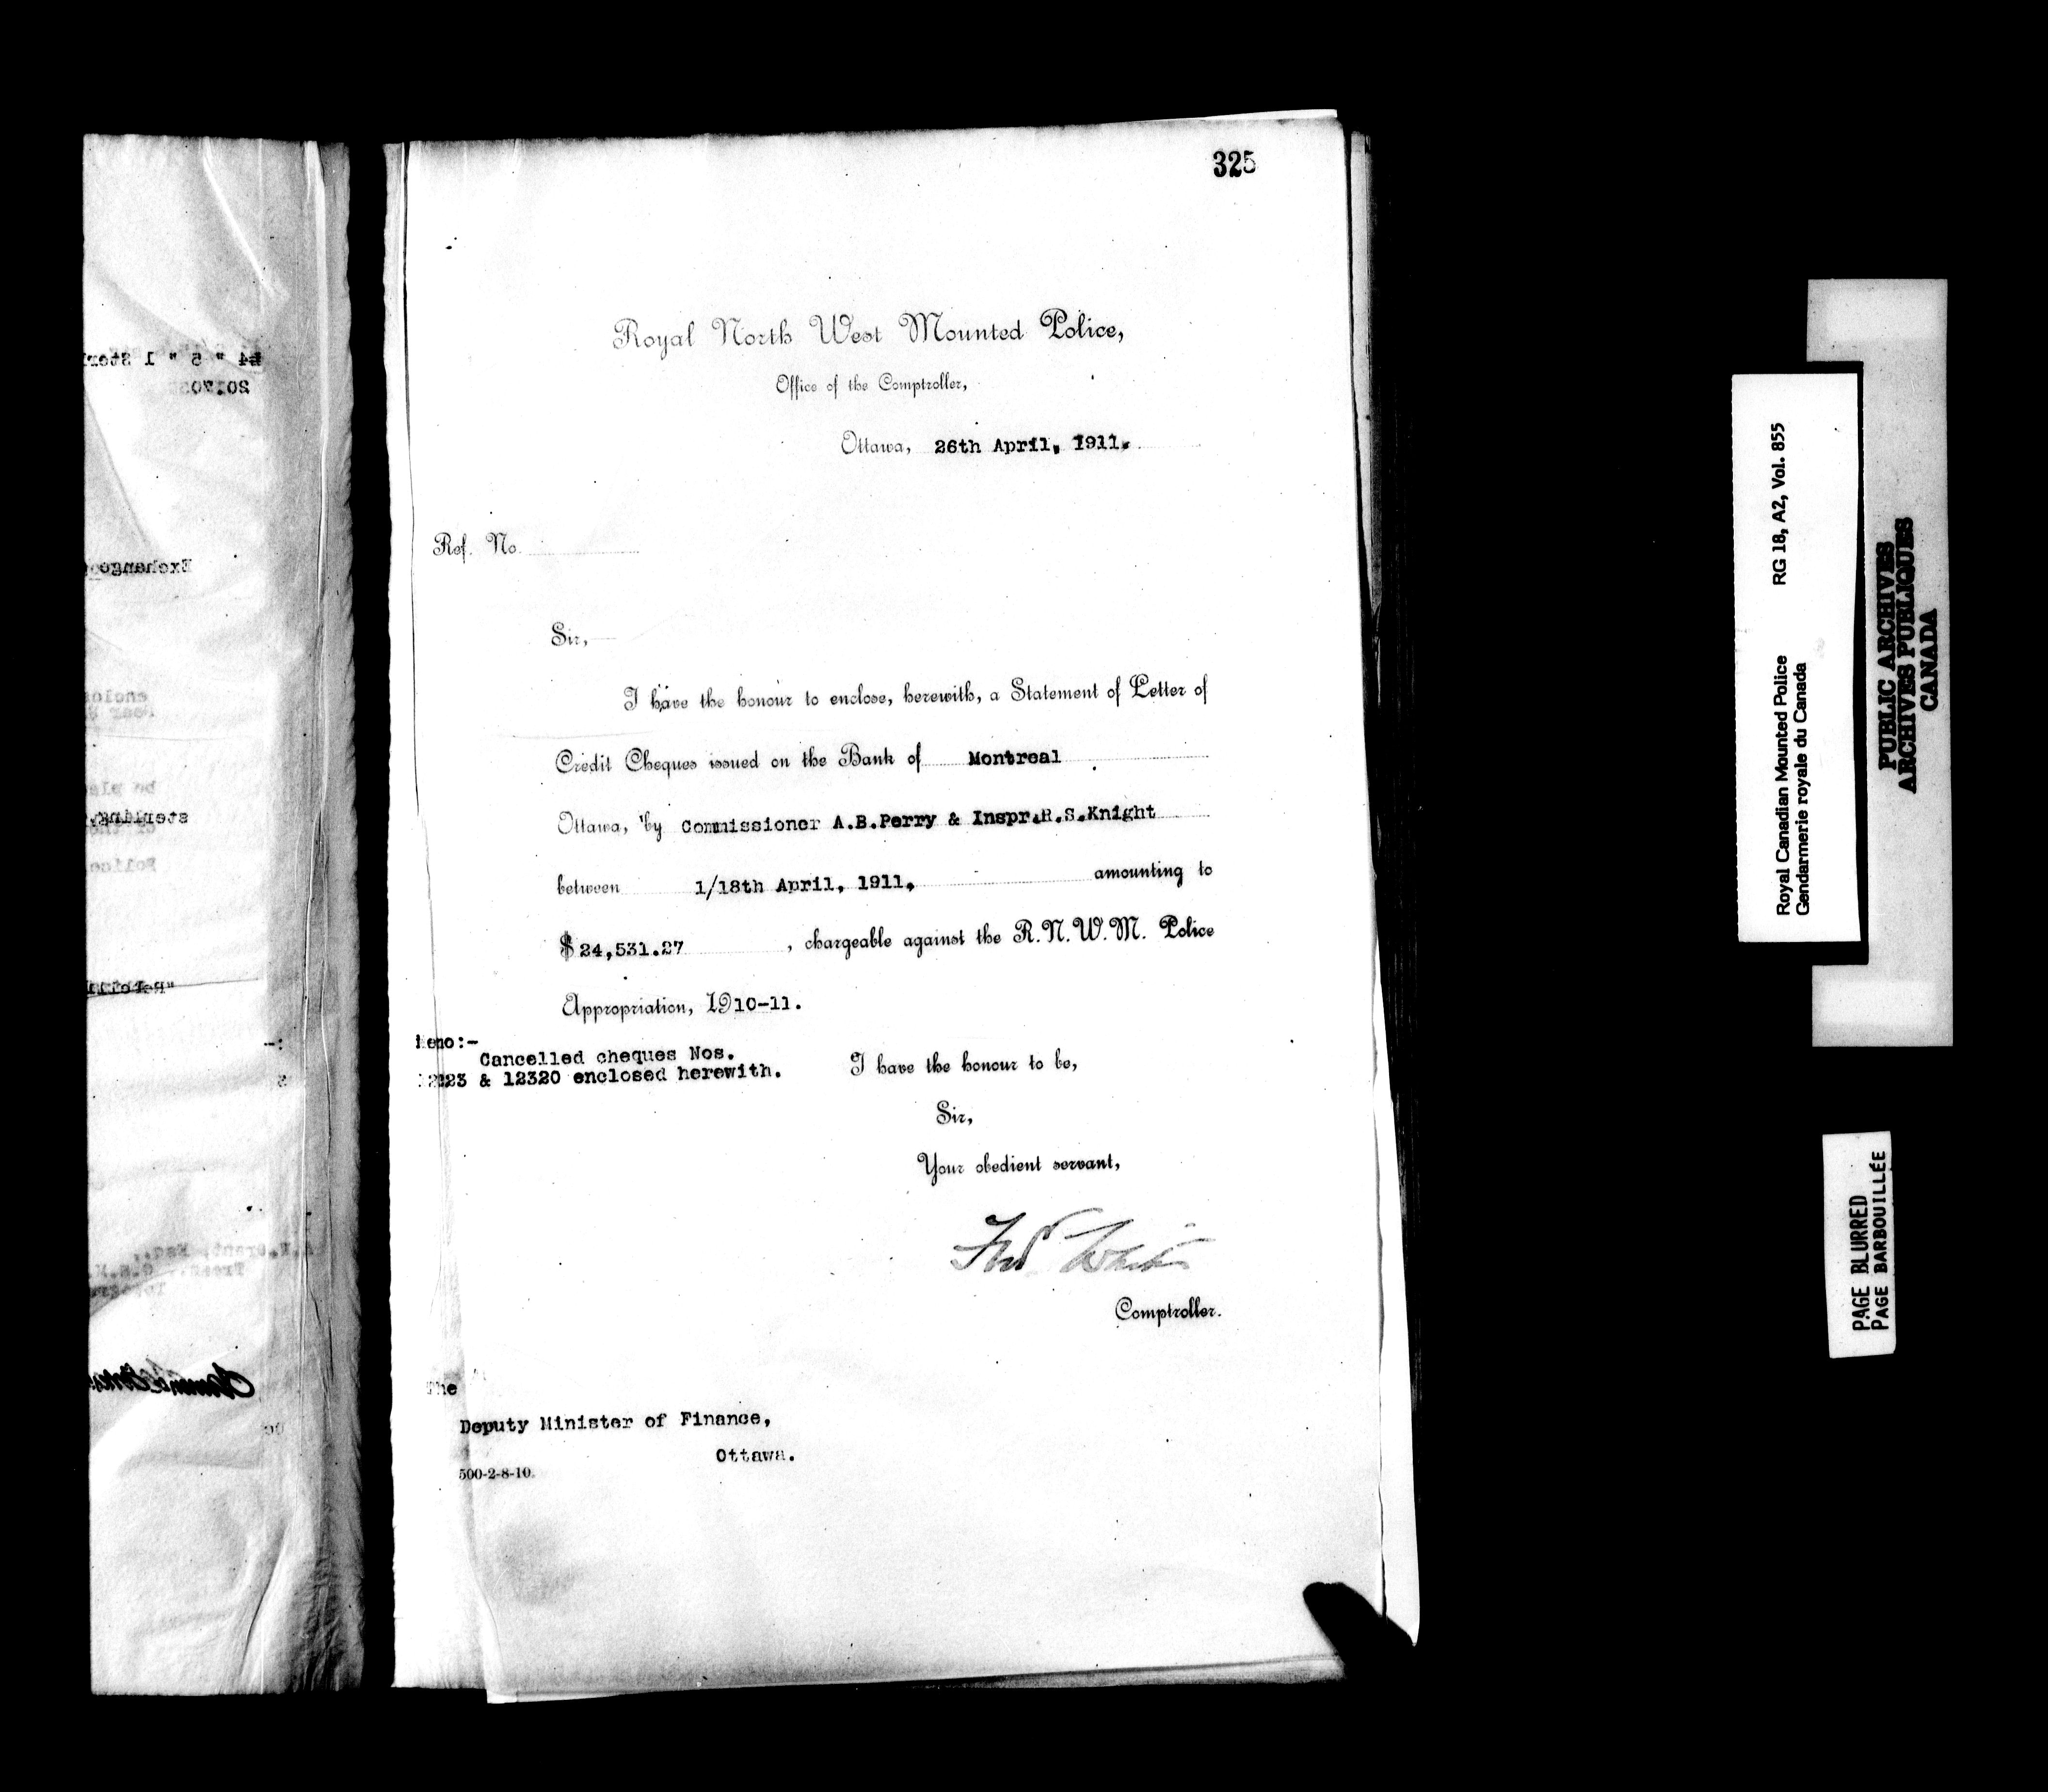 325
Royal North West Mounted Police,
Office of the Comptroller,
Ottawa, 26th April, 1911.
Ref. No.
Sir,
I have the honour to enclose, herewith, a Statement of Letter of
Credit Cheques issued on the Bank of Montreal
Ottawa, by Commissioner A.B.Perry & Inspr.R.S.Knight
between 1/18th April, 1911, amounting to
$24,531.27 , chargeable against the R.N.W.M. Police
Appropriation, 1910-11.
Memo:-
Cancelled cheques Nos.
& 12320 enclosed herewith.
I have the honour to be,
Sir,
Your obedient servant,
Fred White
Comptroller.
The
Deputy Minister of Finance,
Ottawa.
500-2-8-10.
Royal Canadian Mounted Police RG 18, A2, Vol. 855
Gendarmerie royale du Canada
PUBLIC ARCHIVES
ARCHIVES PUBLIQUES
CANADA
PAGE BLURRED
PAGE BARBOUILLÉE